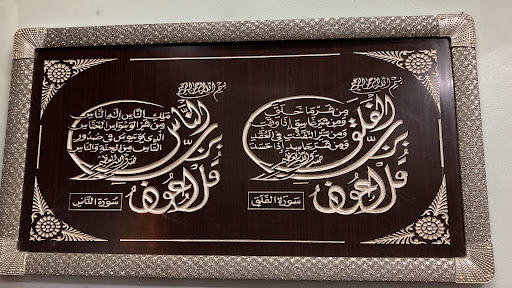 بسم الله الرحمن الرحيم
قل اعوذ برب الفلق
من شر ما خلق
ومن شر غاسق اذا وقب
ومن شر النفثت في العقد
ومن شر حاسد اذا حسد
صدق الله العظيم
سورة الفلق
بسم الله الرحمن الرحيم
قل اعوذ برب الناس
ملك الناس اله الناس
من شر الوسواس الخناس
الذي يوسوس في صدور
الناس من الجنة والناس
صدق الله العظيم
سورة الناس